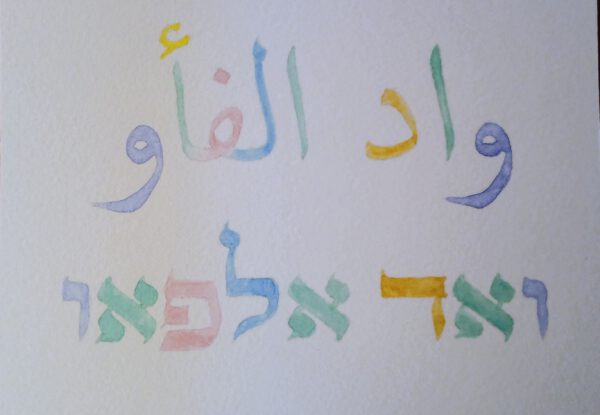 واد الفأو
ואד אלפאו